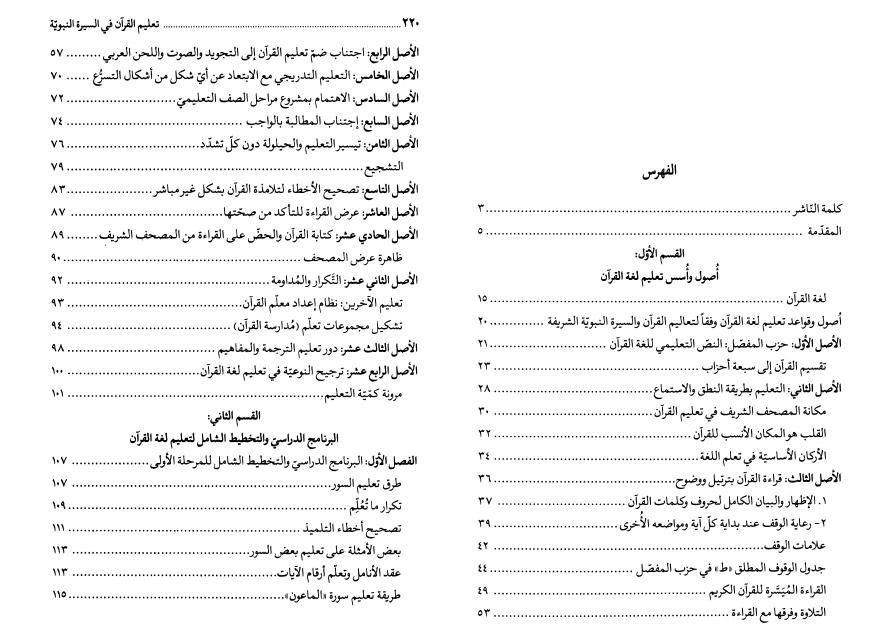 الفهرس
كلمة النّاشر ... ٣
المقدّمة ... ٥
القسم الأوّل:
أُصول وأُسس تعليم لغة القرآن
لغة القرآن ... ١٥
أُصول وقواعد تعليم لغة القرآن وفقاً لتعاليم القرآن والسيرة النبويّة الشريفة ... ٢٠
الأصل الأوّل: حزب المفصّل: النصّ التعليمي للغة القرآن ... ٢١
تقسيم القرآن إلى سبعة أحزاب ... ٢٣
الأصل الثاني: التعليم بطريقة النطق والاستماع ... ٢٨
مكانة المصحف الشريف في تعليم القرآن ... ٣٠
القلب هو المكان الأنسب للقرآن ... ٣٢
الأركان الأساسيّة في تعلم اللغة ... ٣٤
الأصل الثالث: قراءة القرآن بترتيل ووضوح ... ٣٦
١. الإظهار والبيان الكامل لحروف وكلمات القرآن ... ٣٧
٢- رعاية الوقف عند بداية كلّ آية ومواضعه الأُخرى ... ٣٩
علامات الوقف ... ٤٢
جدول الوقوف المطلق «ط» في حزب المفصّل ... ٤٤
القراءة المُيَسَّرة للقرآن الكريم ... ٤٩
التلاوة وفرقها مع القراءة ... ٥٣
٢٢٠ ... تعليم القرآن في السيرة النبويّة
الأصل الرابع: اجتناب ضمّ تعليم القرآن إلى التجويد والصوت واللحن العربي ... ٥٧
الأصل الخامس: التعليم التدريجي مع الابتعاد عن أيّ شكل من أشكال التسرُّع ... ٧٠
الأصل السادس: الاهتمام بمشروع مراحل الصف التعليميّ ... ٧٢
الأصل السابع: إجتناب المطالبة بالواجب ... ٧٤
الأصل الثامن: تيسير التعليم والحيلولة دون كلّ تشدّد ... ٧٦
التشجيع ... ٧٩
الأصل التاسع: تصحيح الأخطاء لتلامذة القرآن بشكل غير مباشر ... ٨٣
الأصل العاشر: عرض القراءة للتأكد من صحّتها ... ٨٧
الأصل الحادي عشر: كتابة القرآن والحضّ على القراءة من المصحف الشريف ... ٨٩
ظاهرة عرض المصحف ... ٩٠
الأصل الثاني عشر: التَّكرار والمُداومة ... ٩٢
تعليم الآخرين: نظام إعداد معلّم القرآن ... ٩٣
تشكيل مجموعات تعلّم (مُدارسة القرآن) ... ٩٤
الأصل الثالث عشر: دور تعليم الترجمة والمفاهيم ... ٩٨
الأصل الرابع عشر: ترجيح النوعيّة في تعليم لغة القرآن ... ١٠٠
مرونة كمّيّة التعليم ... ١٠١
القسم الثاني:
البرنامج الدراسيّ والتخطيط الشامل لتعليم لغة القرآن
الفصل الأوّل: البرنامج الدراسيّ والتخطيط الشامل للمرحلة الأولى ... ١٠٧
طرق تعليم السور ... ١٠٧
تكرار ما تُعُلِّم ... ١٠٩
تصحيح أخطاء التلميذ ... ١١١
بعض الأمثلة على تعليم بعض السور ... ١١٣
عقد الأنامل وتعلّم أرقام الآيات ... ١١٣
طريقة تعليم سورة «الماعون» ... ١١٥